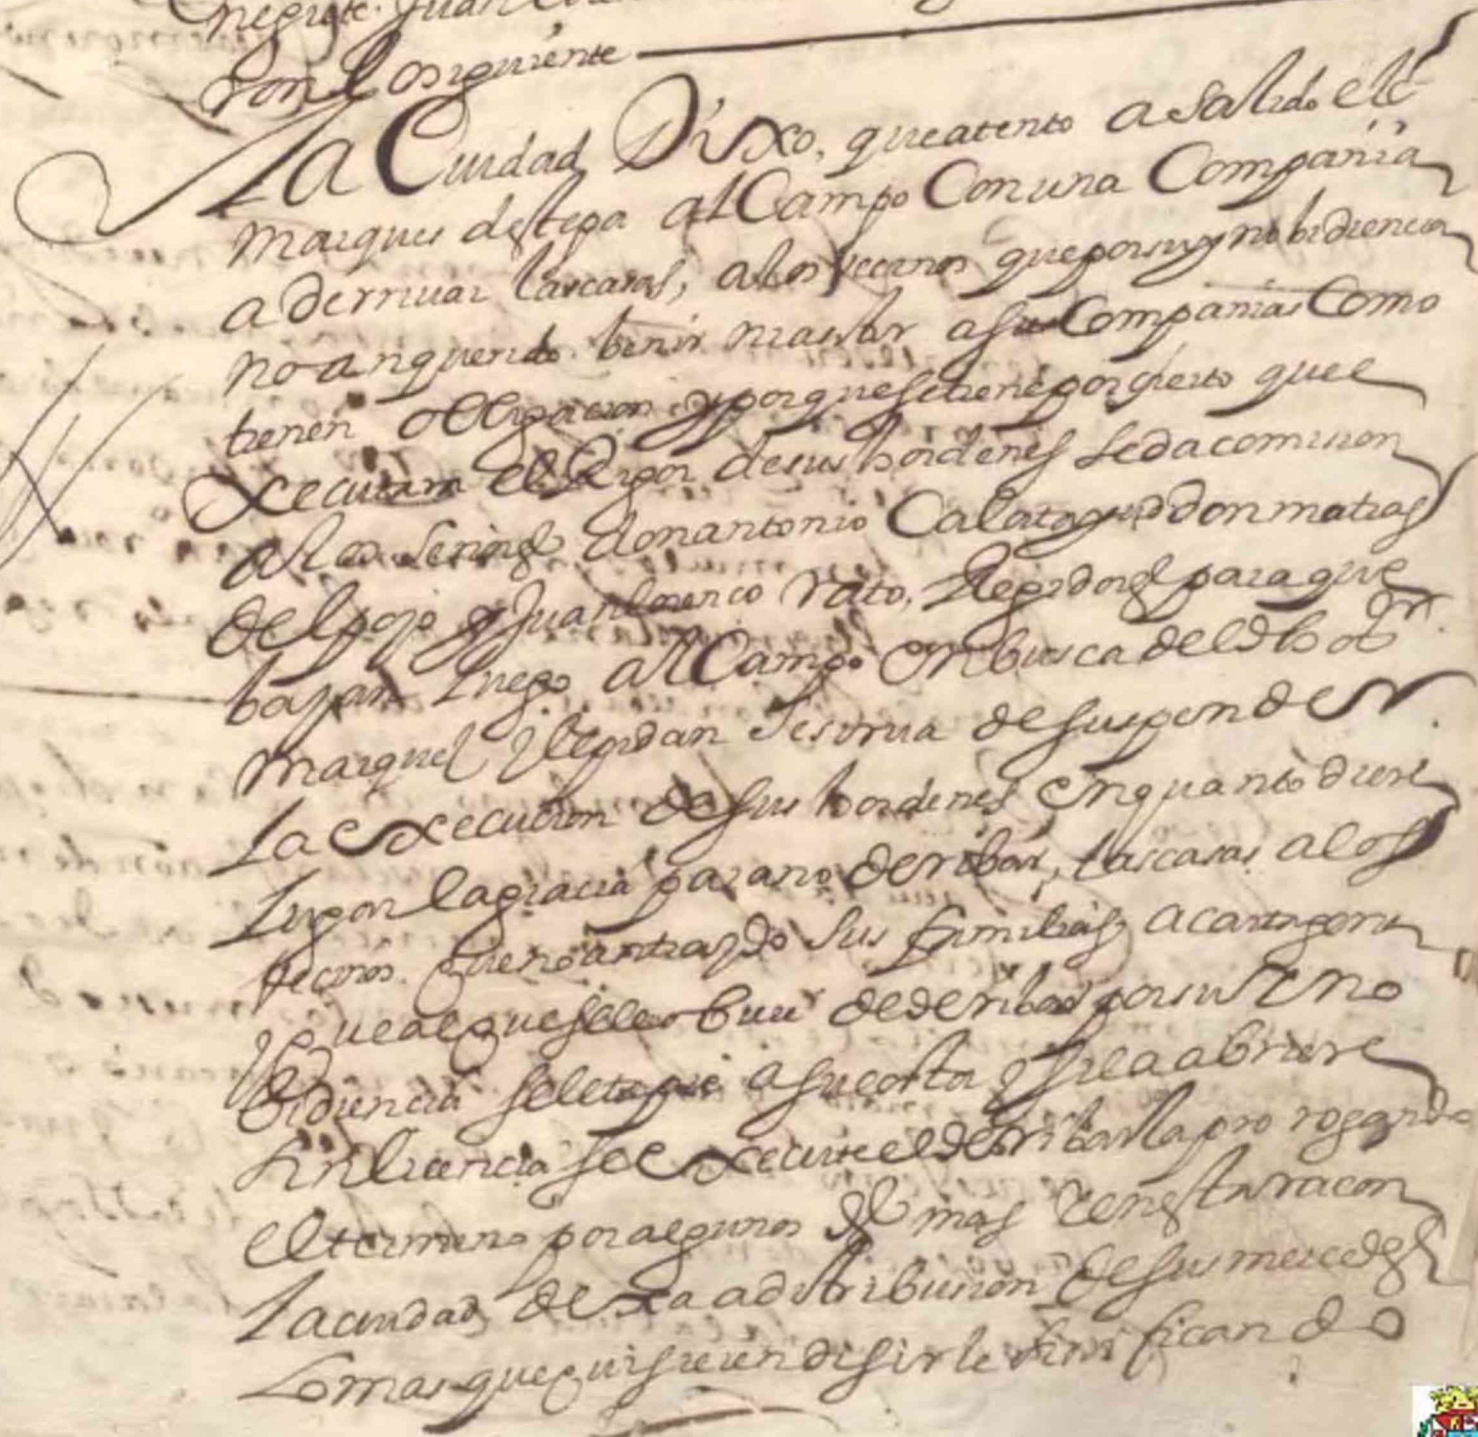 negrete. Juan
ron lo siguiente
La Ciudad Dixo, que atento a salido el
marques de stepa al Campo Con una Compania
a derriuar las casas, a los vecinos que por su ynobidiencia
no an querido benir a su Companias Como
tienen obligacion y porque se tiene por cierto que e
xecutara el Rigor de sus hordenes se da comision
a los Senores don antonio Calatayud don matias
del poyo y Juan lorenco rato, Regidores para que
bajan luego al Campo en busca del dho
marques y le pidan se sirua de suspender
La execucion de sus hordenes en quanto diere
lugar la gracia para no derribar, las casas a los
vecinos que no an traydo sus familias a cartagena
y que al que se le obiere de derribar por su yno
bidiencia se le tapie a su costa y si la abriere
sin licencia se execute el derribarla prorogando
el termino por algunos dias mas y en esta racon
La ciudad dexa a distribusion de sus mercedes
Lo mas que quisieren disirle sinificando